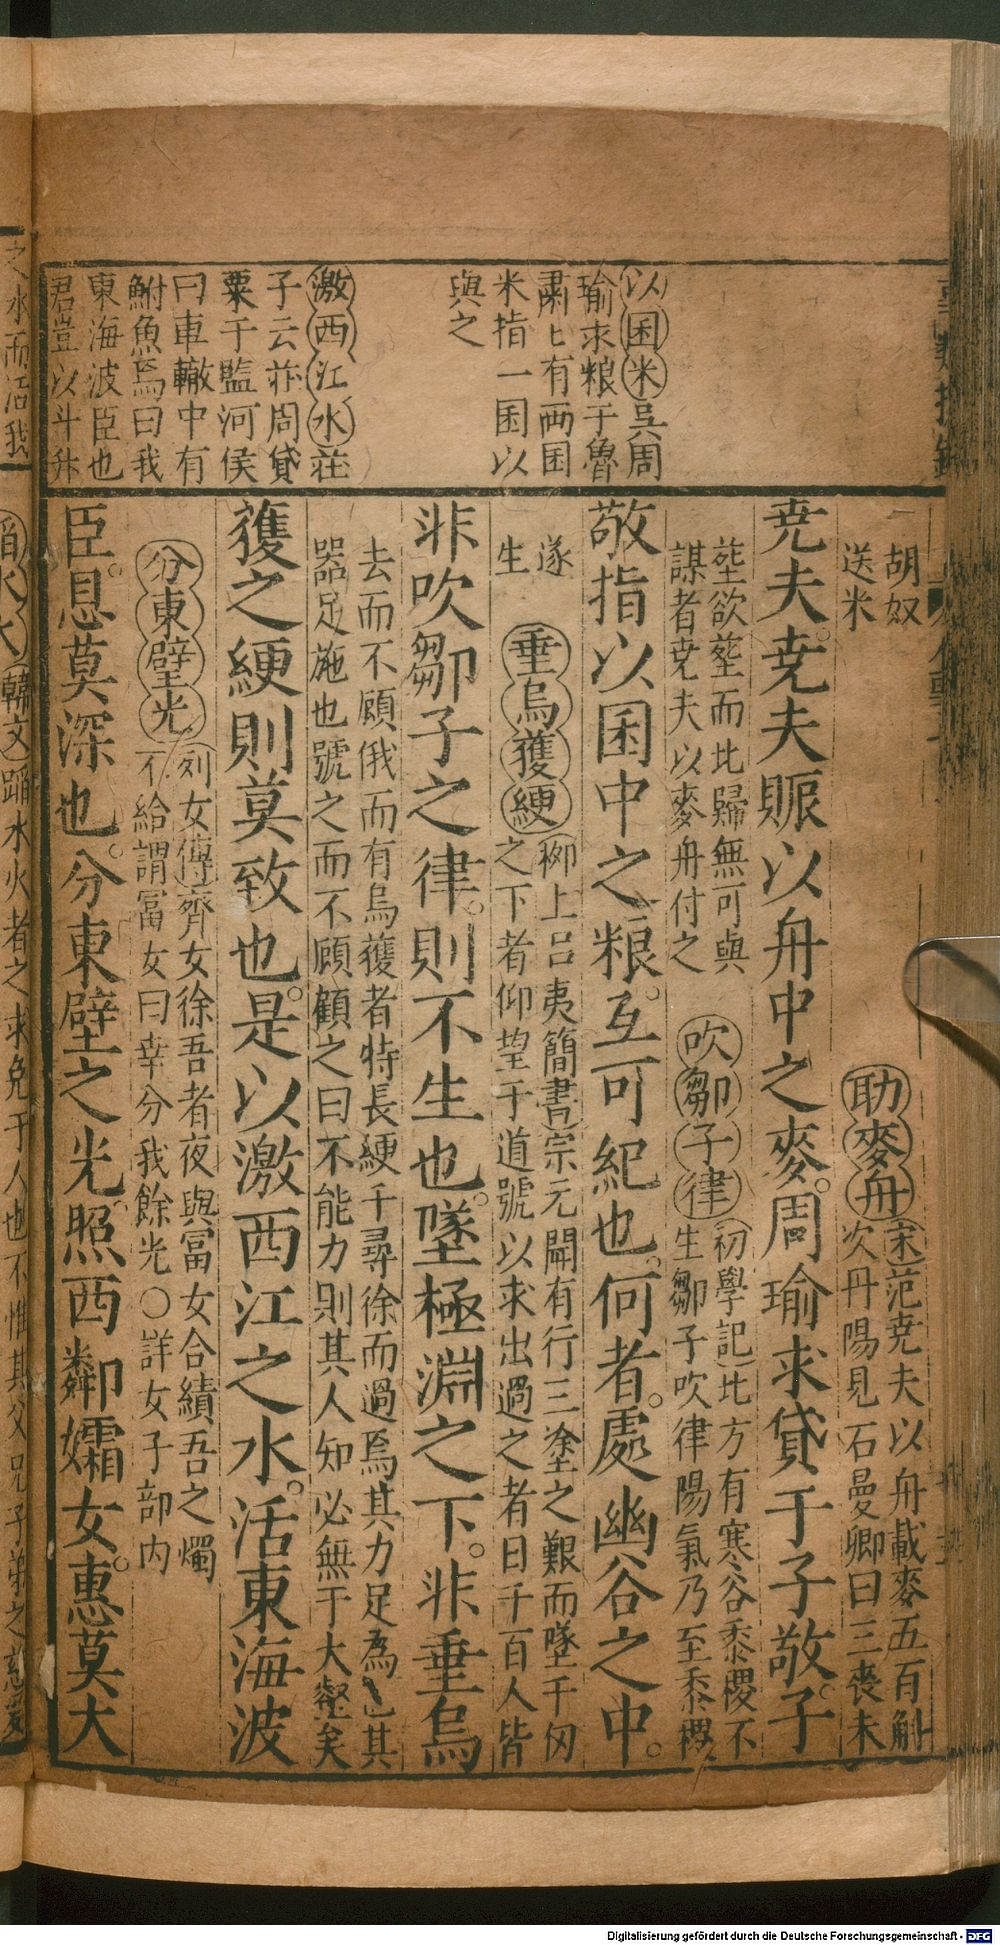 以囷米吳周
瑜求粮于魯
肅匕有两囷
米指一囷以
與之
激西江水莊
子云莊周貸
粟于監河侯
曰車轍中有
鮒魚焉曰我
東海波臣也
君豈以斗升
胡奴
送米
助麥舟宋范尭夫以舟載麥五百斛
次丹陽見石曼卿曰三喪未
尭夫。尭夫賑以舟中之麥。周瑜求貸于子敬。子
塟欲塟而北歸無可與
謀者尭夫以麥舟付之
吹鄒子律初學記北方有寒谷黍稷不
生鄒子吹律陽氣乃至黍稷
敬指以囷中之粮。互可紀也。何者。處幽谷之中。
遂
生
垂烏獲綆柳上吕夷簡書宗元聞有行三塗之艱而墜千仞
之下者仰望于道號以求出過之者日千百人皆
非吹鄒子之律。則不生也。墜極淵之下。非垂烏
去而不顧俄而有烏獲者特長綆千尋徐而過焉其力足為也其
器足施也號之而不顧顧之曰不能力則其人知必無于大壑矣
獲之綆則莫致也。是以激西江之水。活東海波
分東壁光列女傳齊女徐吾者夜與富女合績吾之燭
不給謂富女曰幸分我餘光〇詳女子部内
臣。恩莫深也。分東壁之光。照西鄰孀女。惠莫大
之水而活我
蹈水火韓文蹈水火者之求免于人也不惟其父兄子弟之慈愛
Digitalisierung gefördert durch die Deutsche Forschungsgemeinschaft - DFG